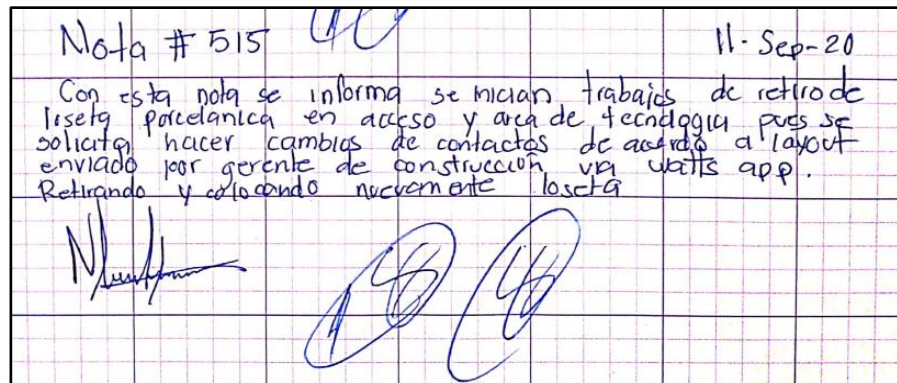 Nota # 515 11-Sep-20
Con esta nota se informa se inician trabajos de retiro de
loseta porcelanica en acceso y area de tecnologia pues se
solicita hacer cambios de contactos de acuerdo a layout
enviado por gerente de construcción via watts app.
Retirando y colocando nuevamente loseta